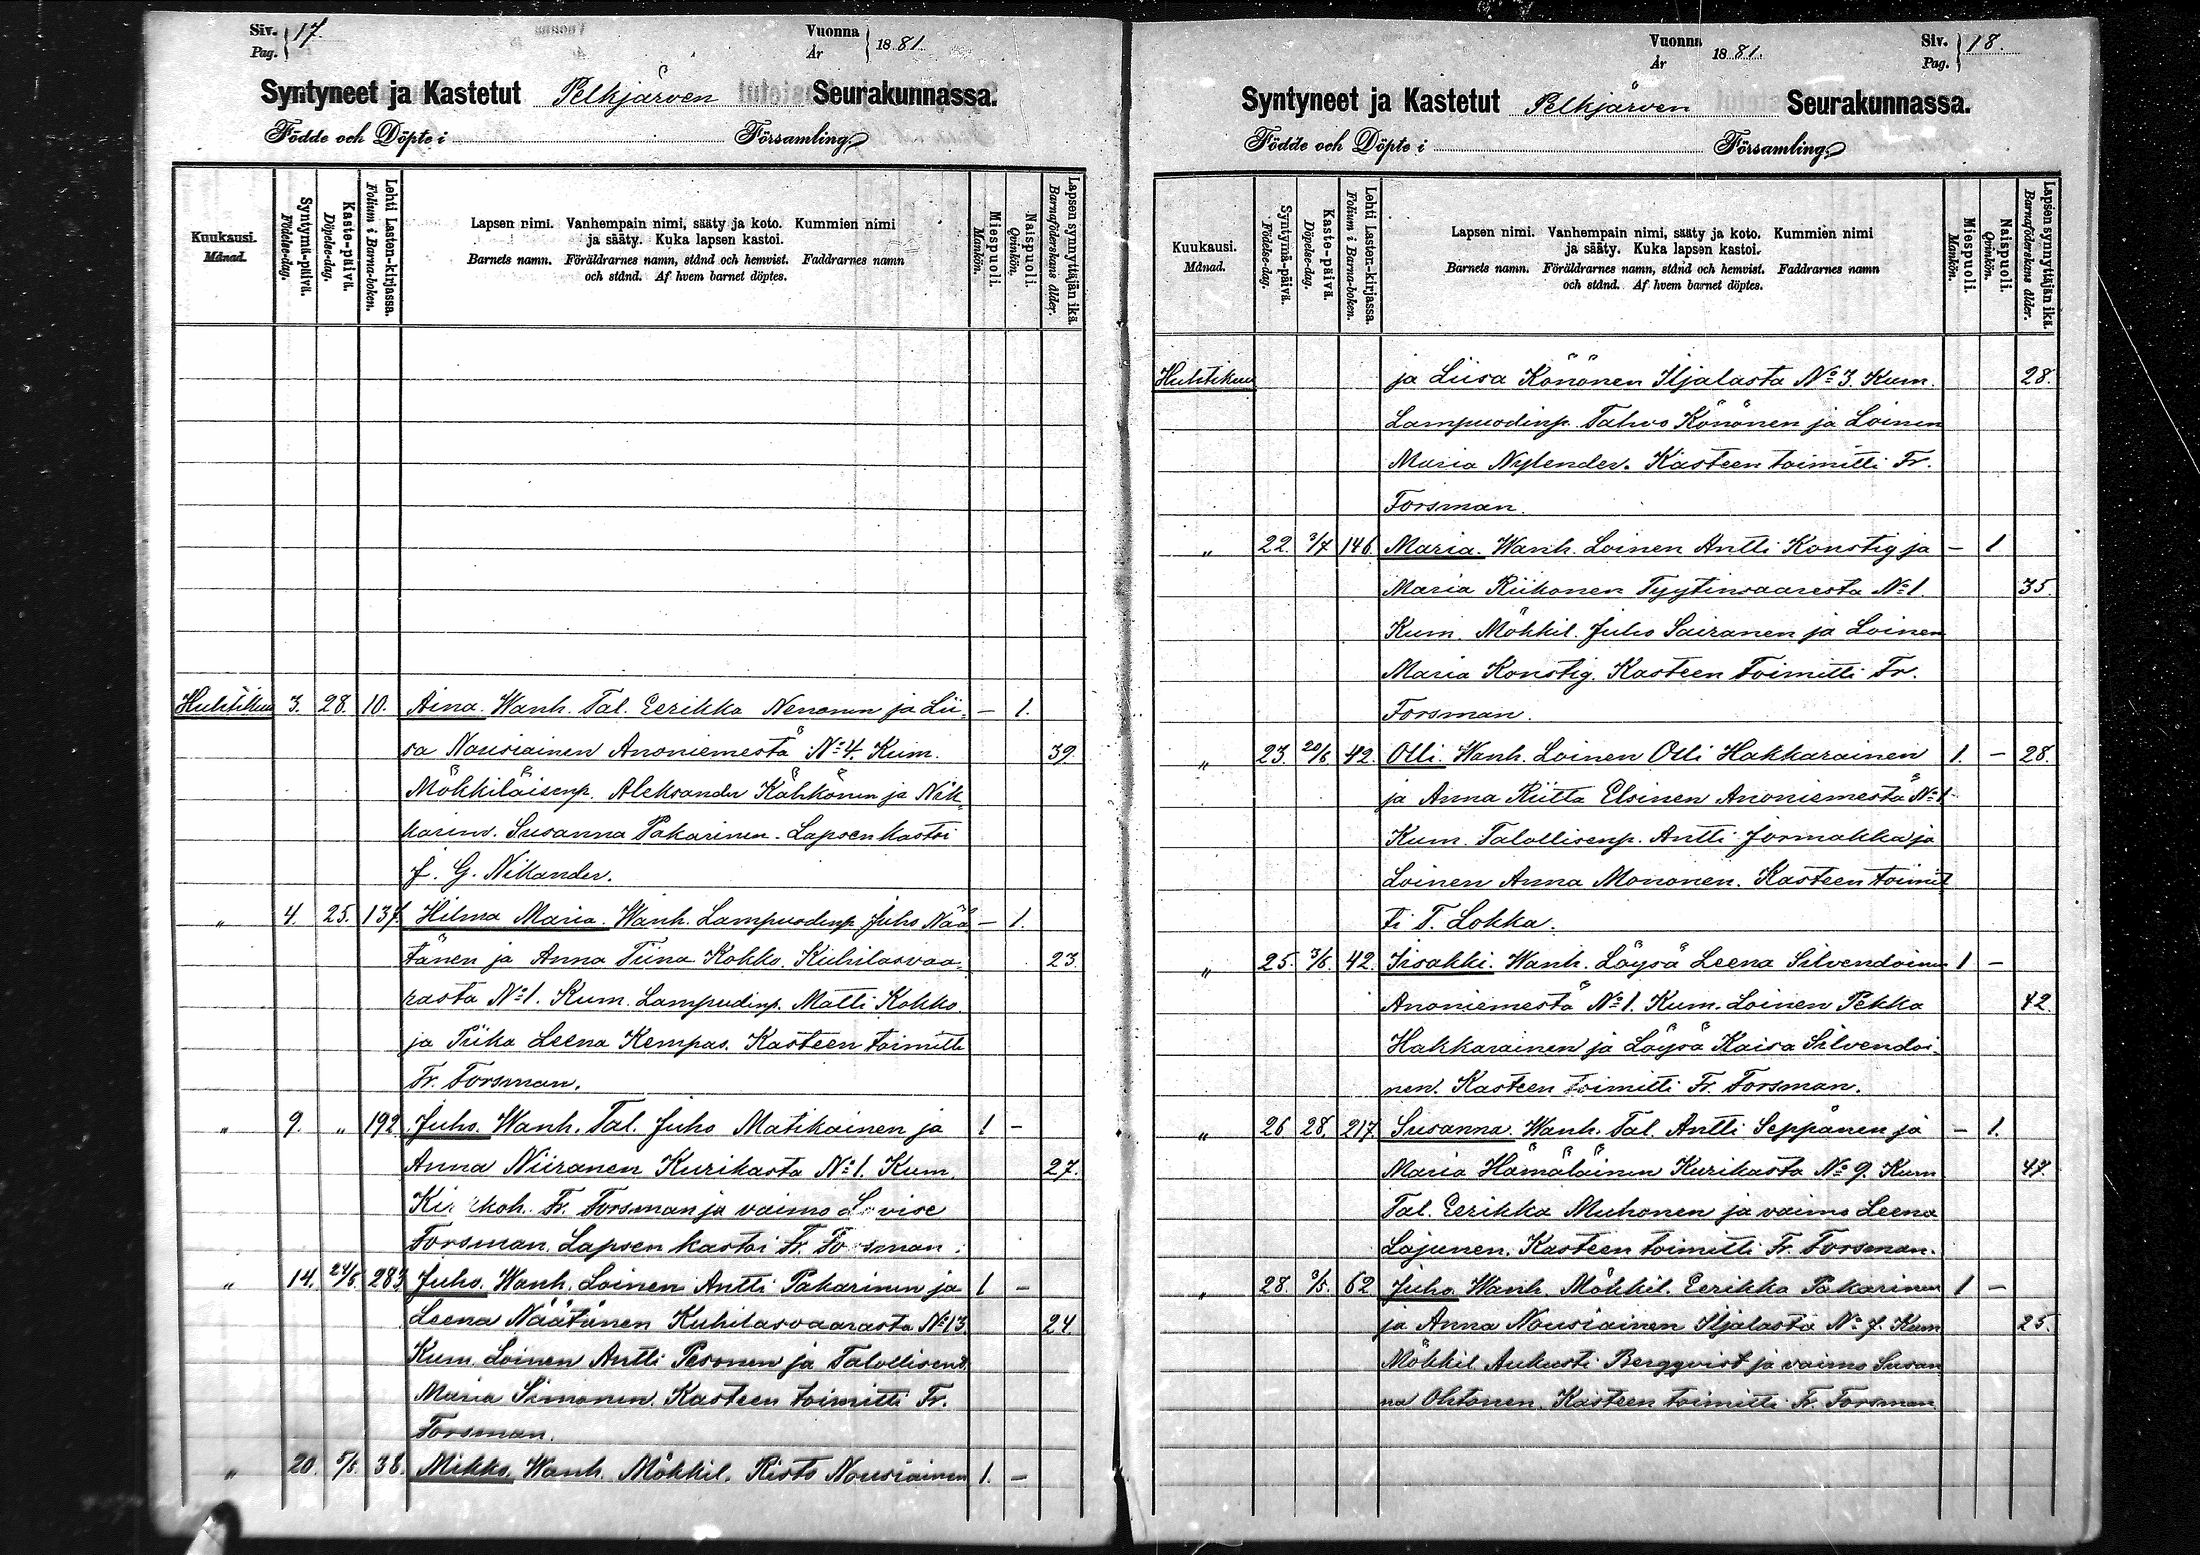 Siv. Pag. 17.
Vuonna År 1881.
Syntyneet ja Kastetut Pelkjärven Seurakunnassa.
Födde och Döpte i Församling.
Kuukausi. Månad.
Syntymä-päivä. Födelse-dag.
Kaste-päivä. Döpelse-dag.
Lehti Lasten-kirjassa. Folium i Barna-boken.
Lapsen nimi. Vanhempain nimi, sääty ja koto. Kummien nimi
ja sääty. Kuka lapsen kastoi.
Barnets namn. Föräldrarnes namn, stånd och hemvist. Faddrarnes namn
och stånd. Af hvem barnet döptes.
Miespuoli. Mankön.
Naispuoli. Qvinkön.
Lapsen synnyttäjän ikä. Barnaföderskans ålder.
Huhtikuu 3. 28. 10. Aina. Wanh. Tal. Eerikka Nenonen ja Lii- — 1.
sa Nousiainen Anoniemestä No 4. Kum. 39.
Mökkiläisenp. Aleksander Kähkönen ja Nik-
karinv. Susanna Pakarinen. Lapsen kastoi
f. G. Nikander.
" 4. 25. 137. Hilma Maria. Wanh. Lampuodinp. Juho Nää- — 1.
tänen ja Anna Tiina Kokko. Kuhilasvaa- 23.
rasta No 1. Kum. Lampudinp. Matti Kokko.
ja Piika Leena Kempas. Kasteen toimitti
Fr. Forsman.
" 9. " 192. Juho. Wanh. Tal. Juho Matikainen ja 1 —
Anna Niiranen Kurikasta No 1. Kum. 27.
Kirkkoh. Fr. Forsman ja vaimo Lovise
Forsman. Lapsen kastoi Fr. Forsman.
" 14. 24/5. 283 Juho. Wanh. Loinen Antti Pakarinen ja 1 —
Leena Näätänen Kuhilasvaarasta No 13. 24.
Kum. Loinen Antti Pesonen ja Talollisenv.
Maria Simonen. Kasteen toimitti Fr.
Forsman.
" 20. 5/5. 38. Mikko. Wanh. Mökkil. Risto Nousiainen 1. —
Vuonna År 1881.
Siv. Pag. 18.
Syntyneet ja Kastetut Pelkjärven Seurakunnassa.
Födde och Döpte i Församling.
Kuukausi. Månad.
Syntymä-päivä. Födelse-dag.
Kaste-päivä. Döpelse-dag.
Lehti Lasten-kirjassa. Folium i Barna-boken.
Lapsen nimi. Vanhempain nimi, sääty ja koto. Kummien nimi
ja sääty. Kuka lapsen kastoi.
Barnets namn. Föräldrarnes namn, stånd och hemvist. Faddrarnes namn
och stånd. Af hvem barnet döptes.
Miespuoli. Mankön.
Naispuoli. Qvinkön.
Lapsen synnyttäjän ikä. Barnaföderskans ålder.
Huhtikuu ja Liisa Könönen Iljalasta No 3. Kum. 28.
Lampuodinp. Tahvo Könönen ja Loinen
Maria Nylender. Kasteen toimitti Fr.
Forsman.
" 22. 3/7 146. Maria. Wanh. Loinen Antti Konstig ja — 1
Maria Riikonen Tyytinvaaresta No 1. 35.
Kum. Mökkil. Juho Sairanen ja Loinen
Maria Konstig. Kasteen toimitti Fr.
Forsman.
" 23. 20/6 42. Olli. Wanh. Loinen Olli Hakkarainen 1. — 28.
ja Anna Riitta Elsinen Anoniemestä No 1
Kum. Talollisenp. Antti Jormakka ja
Loinen Anna Mononen. Kasteen toimit-
ti T. Lokka.
" 25. 3/6. 42. Iisakki. Wanh. Löysä Leena Silvendoinen 1 —
Anoniemestä No 1. Kum. Loinen Pekka 42.
Hakkarainen ja Löysä Kaisa Silvendoi-
nen. Kasteen toimitti Fr. Forsman.
" 26 28. 217. Susanna. Wanh. Tal. Antti Seppänen ja — 1.
Maria Hämäläinen Kurikasta No 9. Kum. 47.
Tal. Eerikka Muhonen ja vaimo Leena
Lajunen. Kasteen toimitti Fr. Forsman.
" 28. 9/5. 62 Juho. Wanh. Mökkil. Eerikka Pakarinen 1 —
ja Anna Nousiainen Iljalasta No 7. Kum 25.
Mökkil Aukusti Bergqvist ja vaimo Susan
na Ohtonen. Kasteen toimitti Fr. Forsman.